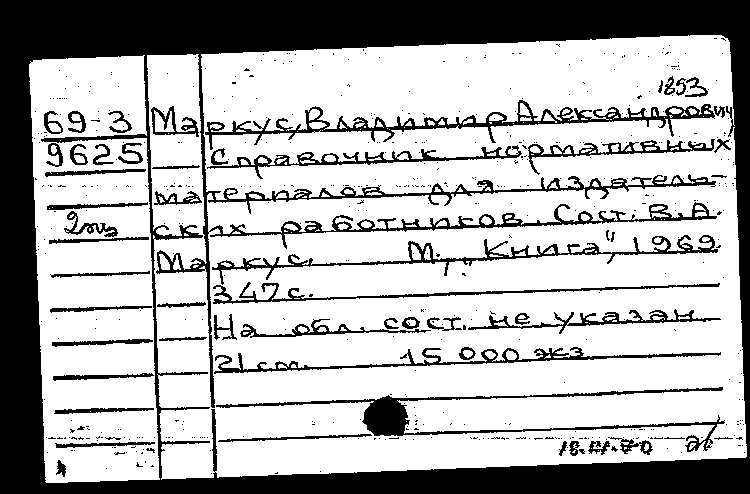 1853
69-3 Маркус, Владимир Александрович
9625 Справочник нормативных
материалов для издатель-
ских работников. Сост. В.А.
Маркус. М., „Книга", 1969.
347 с.
На обл. сост. не указан
21 см. 15 000 экз.